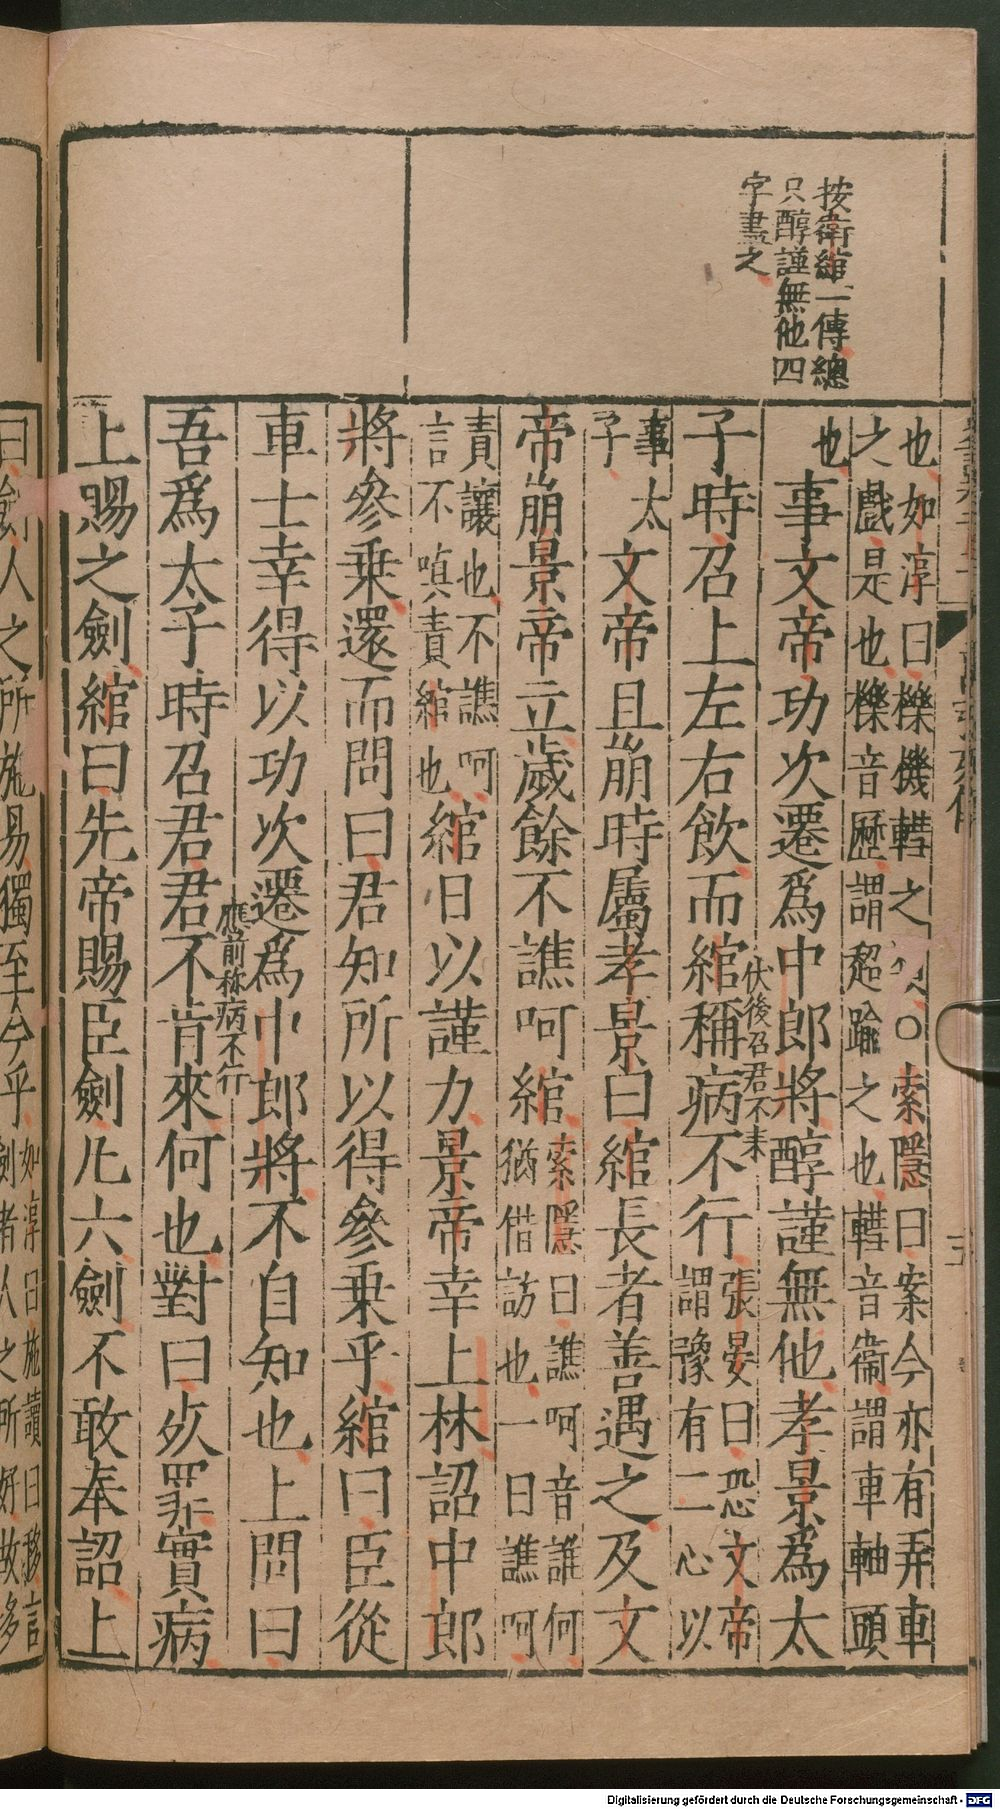 按衛綰一傳總
只醇謹無他四
字盡之
也如淳曰櫟機轊之
○索隱曰案今亦有弄車
之戲是也櫟音歷謂超踰之也轊音衞謂車軸頭
也
事文帝功次遷爲中郎將醇謹無他孝景爲太
伏後召君不来
子時召上左右飲而綰稱病不行
張晏曰恐文帝
謂豫有二心以
事太
子
文帝且崩時屬孝景曰綰長者善遇之及文
帝崩景帝立歲餘不譙呵綰
索隱曰譙呵音誰何
猶借訪也一曰譙呵
責讓也不譙呵
言不嗔責綰也
綰日以謹力景帝幸上林詔中郎
將參乗還而問曰君知所以得參乗乎綰曰臣從
車士幸得以功次遷爲中郎將不自知也上問曰
應前称病不行
吾爲太子時召君君不肯來何也對曰死罪實病
上賜之劒綰曰先帝賜臣劒凡六劒不敢奉詔上
曰劒人之所施易獨至今乎
如淳曰施讀曰移言
劒者人之所好故多
Digitalisierung gefördert durch die Deutsche Forschungsgemeinschaft - DFG